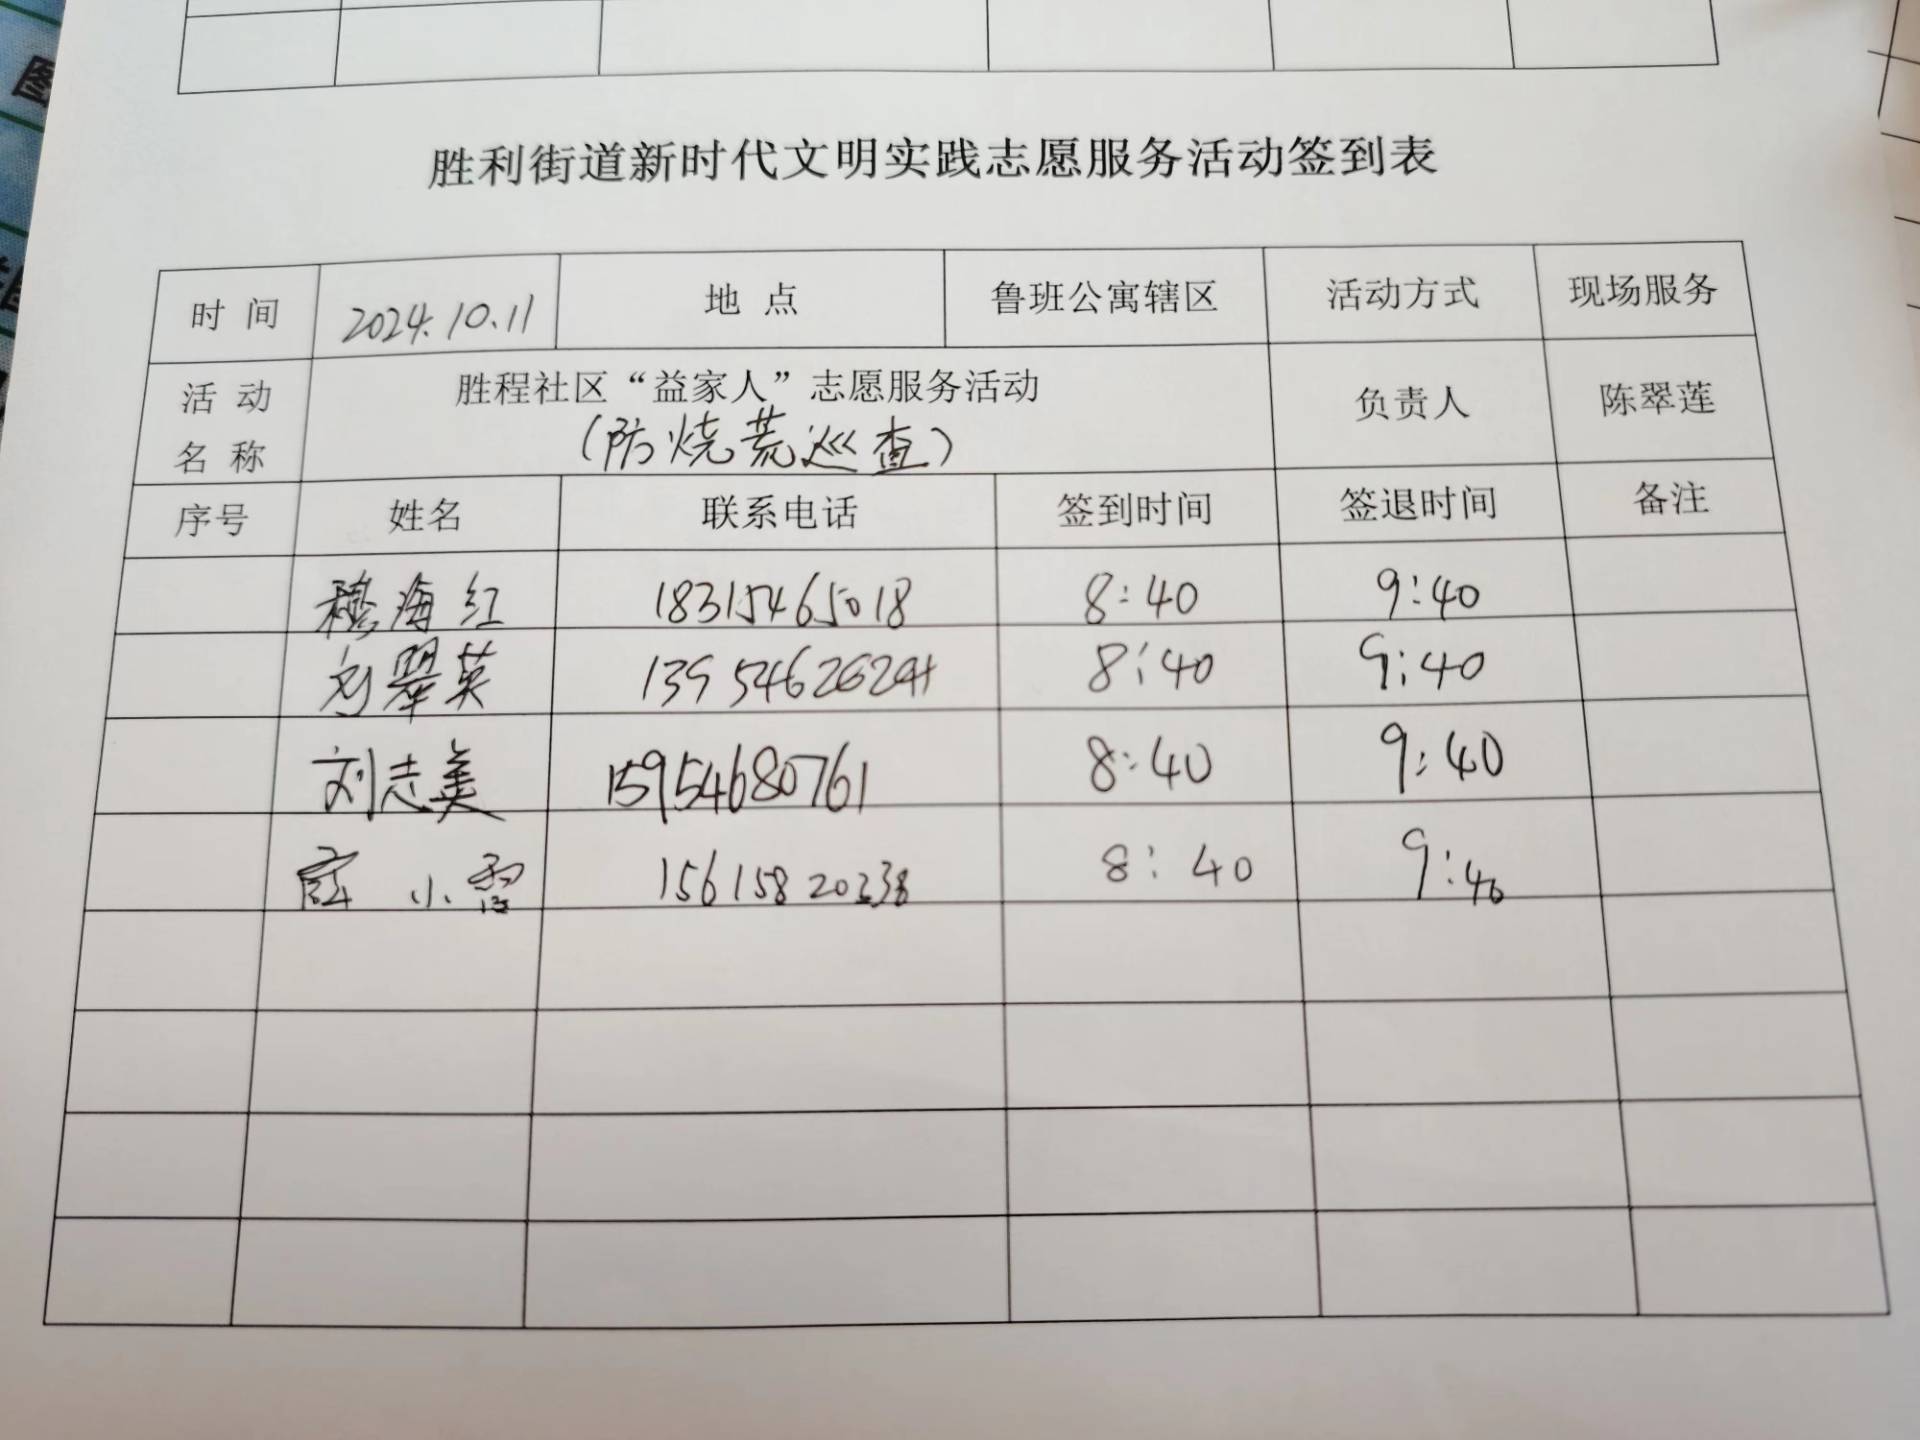 胜利街道新时代文明实践志愿服务活动签到表
时 间 2024.10.11 地 点 鲁班公寓辖区 活动方式 现场服务
活 动 名 称 胜程社区“益家人”志愿服务活动 负责人 陈翠莲
（防烧荒巡查）
序号 姓名 联系电话 签到时间 签退时间 备注
穆海红 18315465018 8:40 9:40
刘翠英 8:40 9:40
刘志美 15954680761 8:40 9:40
薛小雪 8:40 9:40